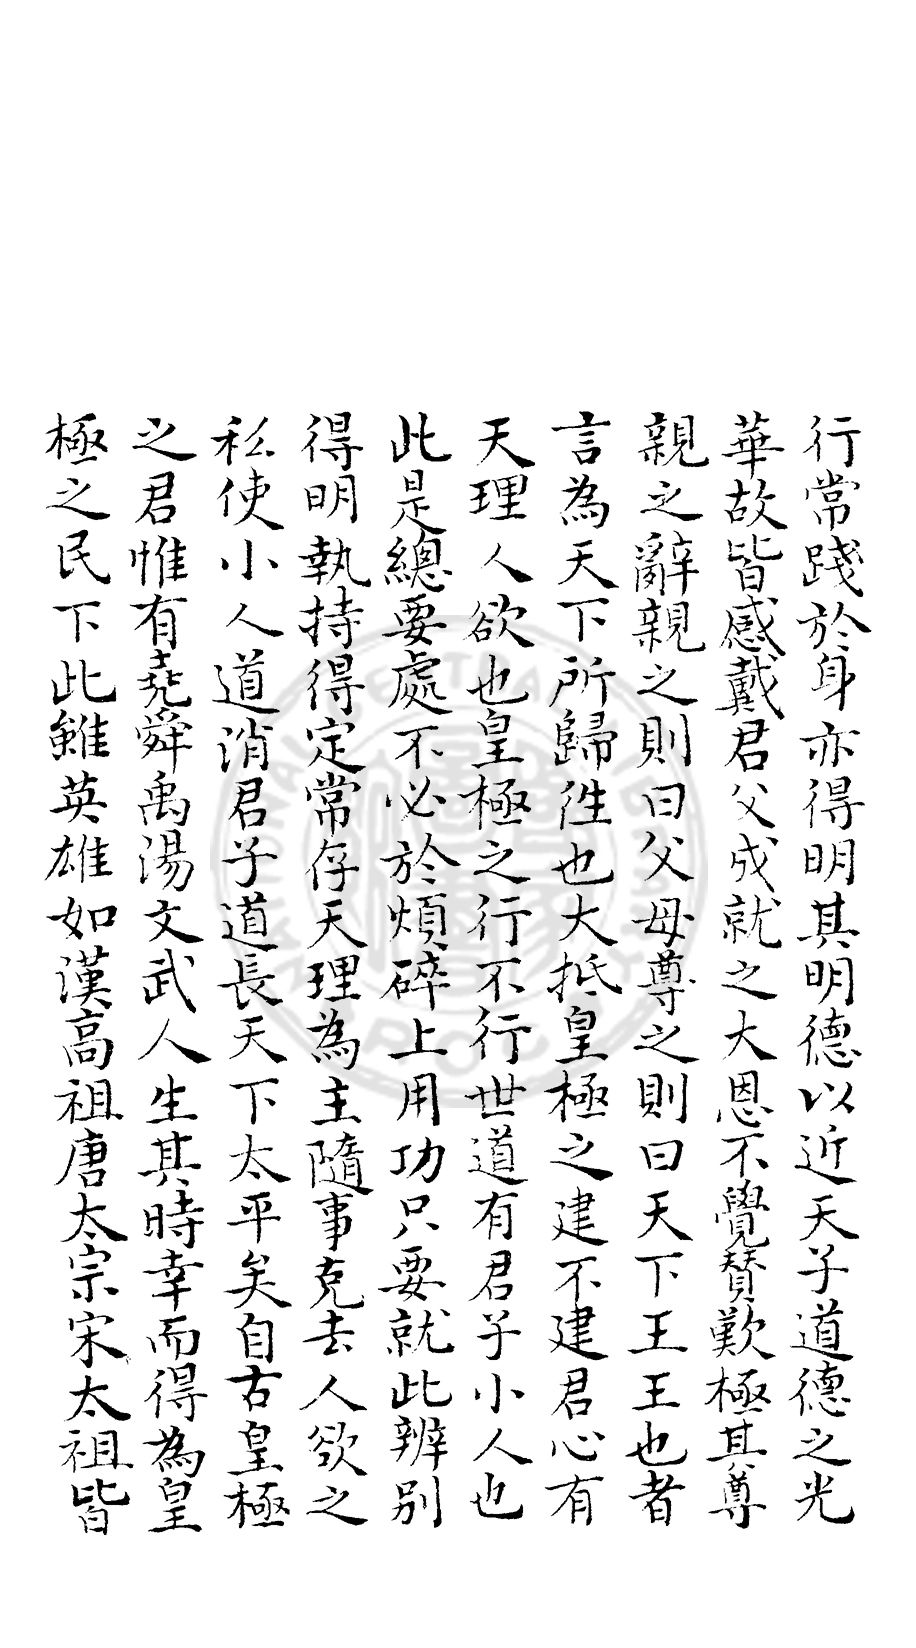 行常踐於身亦得明其明德以近天子道德之光
華故皆感戴君父成就之大恩不覺贊歎極其尊
親之辭親之則曰父母尊之則曰天下王王也者
言為天下所歸徃也大抵皇極之建不建君心有
天理人欲也皇極之行不行世道有君子小人也
此是總要處不必於煩碎上用功只要就此辨別
得明執持得定常存天理為主隨事克去人欲之
私使小人道消君子道長天下太平矣自古皇極
之君惟有堯舜禹湯文武人生其時幸而得為皇
極之民下此雖英雄如漢高祖唐太宗宋太祖皆